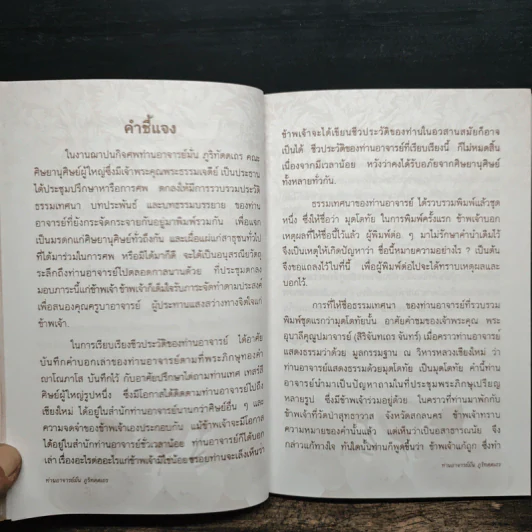 คำชี้แจง
ในงานฌาปนกิจศพท่านอาจารย์มั่น ภูริทัตตเถร คณะ
ศิษยานุศิษย์ผู้ใหญ่ซึ่งมีเจ้าพระคุณพระธรรมเจดีย์ เป็นประธาน
ได้ประชุมปรึกษาหารือการศพ ตกลงให้มีการรวบรวมประวัติ
ธรรมเทศนา บทประพันธ์ และบทธรรมบรรยาย ของท่าน
อาจารย์ที่ยังกระจัดกระจายกันอยู่มาพิมพ์รวมกัน เพื่อแจก
เป็นมรดกแก่ศิษยานุศิษย์ทั่วถึงกัน และเผื่อแผ่แก่สาธุชนทั่วไป
ที่ได้มาร่วมในการศพ หรือมิได้มาก็ดี จะได้เป็นอนุสรณียวัตถุ
ระลึกถึงท่านอาจารย์ไปตลอดกาลนานด้วย ที่ประชุมตกลง
มอบภาระนี้แก่ข้าพเจ้า ข้าพเจ้าก็เต็มใจรับภาระจัดทำตามประสงค์
เพื่อสนองคุณครูบาอาจารย์ ผู้ประทานแสงสว่างทางจิตใจแก่
ข้าพเจ้า
ในการเรียบเรียงชีวประวัติของท่านอาจารย์ ได้อาศัย
บันทึกคำบอกเล่าของท่านอาจารย์ตามที่พระภิกษุทองคำ
ญาโณภาโส บันทึกไว้ กับอาศัยปรึกษาไต่ถามท่านเทศ เทสรํสี
ศิษย์ผู้ใหญ่รูปหนึ่ง ซึ่งมีโอกาสได้ติดตามท่านอาจารย์ไปถึง
เชียงใหม่ ได้อยู่ในสำนักท่านอาจารย์นานกว่าศิษย์อื่น ๆ และ
ความจดจำของข้าพเจ้าเองประกอบกัน แม้ข้าพเจ้าจะมีโอกาส
ได้อยู่ในสำนักท่านอาจารย์ชั่วเวลาน้อย ท่านอาจารย์ก็ได้บอก
เล่า เรื่องอะไรต่ออะไรแก่ข้าพเจ้ามิใช่น้อย ชรอยท่านจะเล็งเห็นว่า
ท่านอาจารย์มั่น ภูริทัตตเถร
ข้าพเจ้าจะได้เขียนชีวประวัติของท่านในอวสานสมัยก็อาจ
เป็นได้ ชีวประวัติของท่านอาจารย์ที่เรียบเรียงนี้ ก็ไม่หมดสิ้น
เนื่องจากมีเวลาน้อย หวังว่าคงได้รับอภัยจากศิษยานุศิษย์
ทั้งหลายทั่วกัน
ธรรมเทศนาของท่านอาจารย์ ได้รวบรวมพิมพ์แล้วชุด
หนึ่ง ซึ่งให้ชื่อว่า มุตโตทัย ในการพิมพ์ครั้งแรก ข้าพเจ้าบอก
เหตุผลที่ให้ชื่อนี้ไว้แล้ว ผู้พิมพ์ต่อ ๆ มาไม่รักษาคำนำเดิมไว้
จึงเป็นเหตุให้เกิดปัญหาว่า ชื่อนี้หมายความอย่างไร ? เป็นต้น
จึงขอแถลงไว้ในที่นี้ เพื่อผู้พิมพ์ต่อไปจะได้ทราบเหตุผลและ
บอกไว้
การที่ให้ชื่อธรรมเทศนา ของท่านอาจารย์ที่รวบรวม
พิมพ์ชุดแรกว่ามุตโตทัยนั้น อาศัยคำชมของเจ้าพระคุณ พระ
อุบาลีคุณูปมาจารย์ (สิริจันทเถร จันทร์) เมื่อคราวท่านอาจารย์
แสดงธรรมว่าด้วย มูลกรรมฐาน ณ วิหารหลวงเชียงใหม่ ว่า
ท่านอาจารย์แสดงธรรมด้วยมุตโตทัย เป็นมุตโตทัย คำนี้ท่าน
อาจารย์นำมาเป็นปัญหาถามในที่ประชุมพระภิกษุเปรียญ
หลายรูป ซึ่งมีข้าพเจ้าร่วมอยู่ด้วย ในคราวที่ท่านมาพักกับ
ข้าพเจ้าที่วัดป่าสุทธาวาส จังหวัดสกลนคร ข้าพเจ้าทราบ
ความหมายของคำนั้นแล้ว แต่เห็นว่าเป็นสาธารณนัย จึง
กล่าวแก้ทางใจ ทันใดนั้นท่านก็พูดขึ้นว่า ข้าพเจ้าแก้ถูก ซึ่งทำ
ท่านอาจารย์มั่น ภูริทัตตเถร